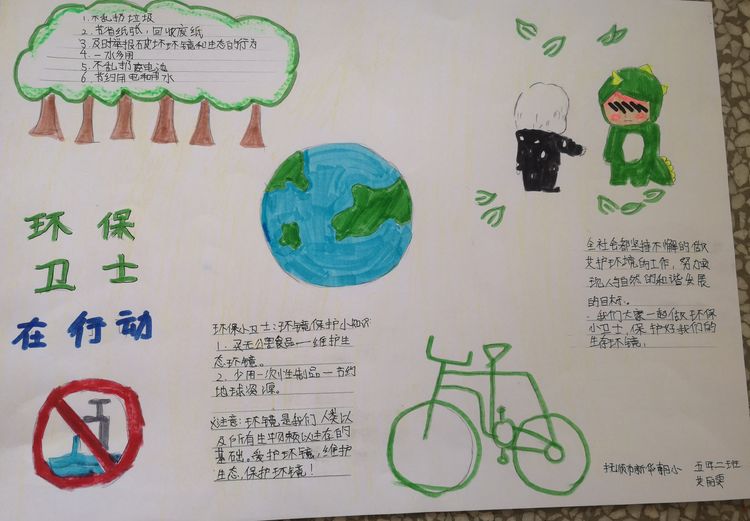 1. 不乱扔垃圾
2. 节省纸张，回收废纸
3. 及时举报破坏环境和生态的行为
4. 一水多用
5. 不乱扔废电池
6. 节约用电和用水
环保
卫士
在行动
环保小卫士：环境保护小知识
1. 买无公害食品——维护生
态环境。
2. 少用一次性制品——节约
地球资源。
注意：环境是我们人类以
及所有生物赖以生存的
基础。爱护环境，维护
生态，保护环境！
全社会都坚持不懈的做
爱护环境的工作，努力实
现人与自然的和谐发展
的目标。
我们大家一起做环保
小卫士，保护好我们的
生存环境，
抚顺市新华朝小 五年二班